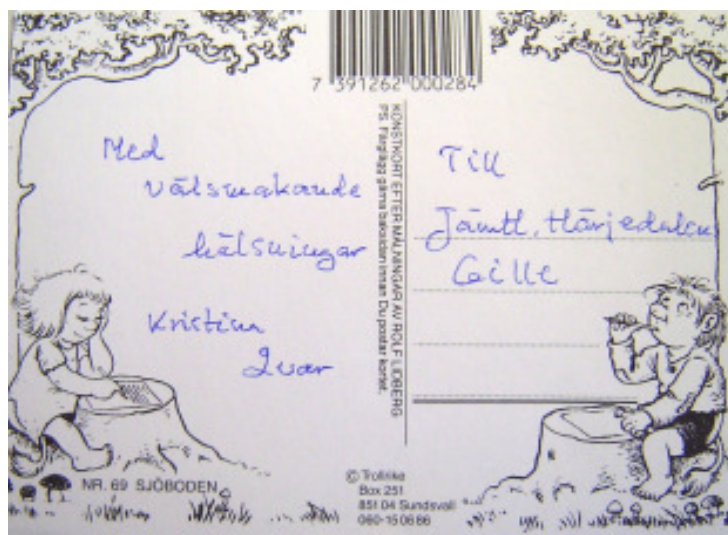 7 391262 000284
Med
välsmakande
hälsningar
Kristina
Ivar
KONSTKORT EFTER MÅLNINGAR AV ROLF LIDBERG
PS. Färglägg gärna baksidan innan Du postar kortet.
Till
Jämtl. Härjedalen
Gille
NR. 69 SJÖBODEN
© Trollrike
Box 251
851 04 Sundsvall
060-15 06 86